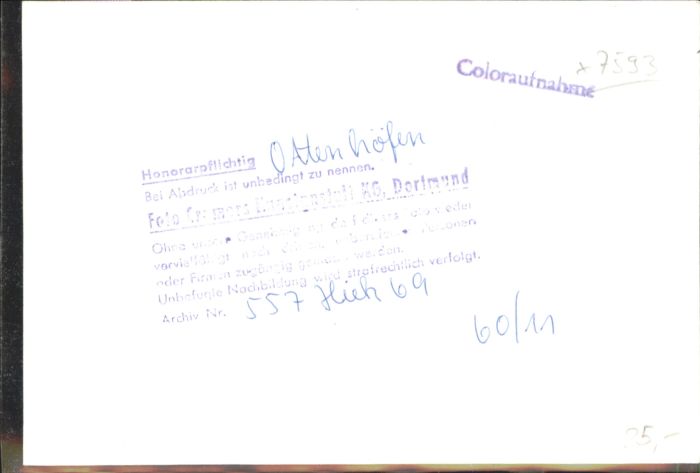 x 7593
Coloraufnahme
Ottenhöfen
Honorarpflichtig
Bei Abdruck ist unbedingt zu nennen.
Foto Cramers Kunstanstalt KG, Dortmund
Ohne unsere Genehmigung darf dieses oder
vervielfältigt noch Personen
oder Firmen zugängig gemacht werden.
Unbefugte Nachbildung wird strafrechtlich verfolgt.
Archiv Nr. 557 Hiek 69
60/11
25,-